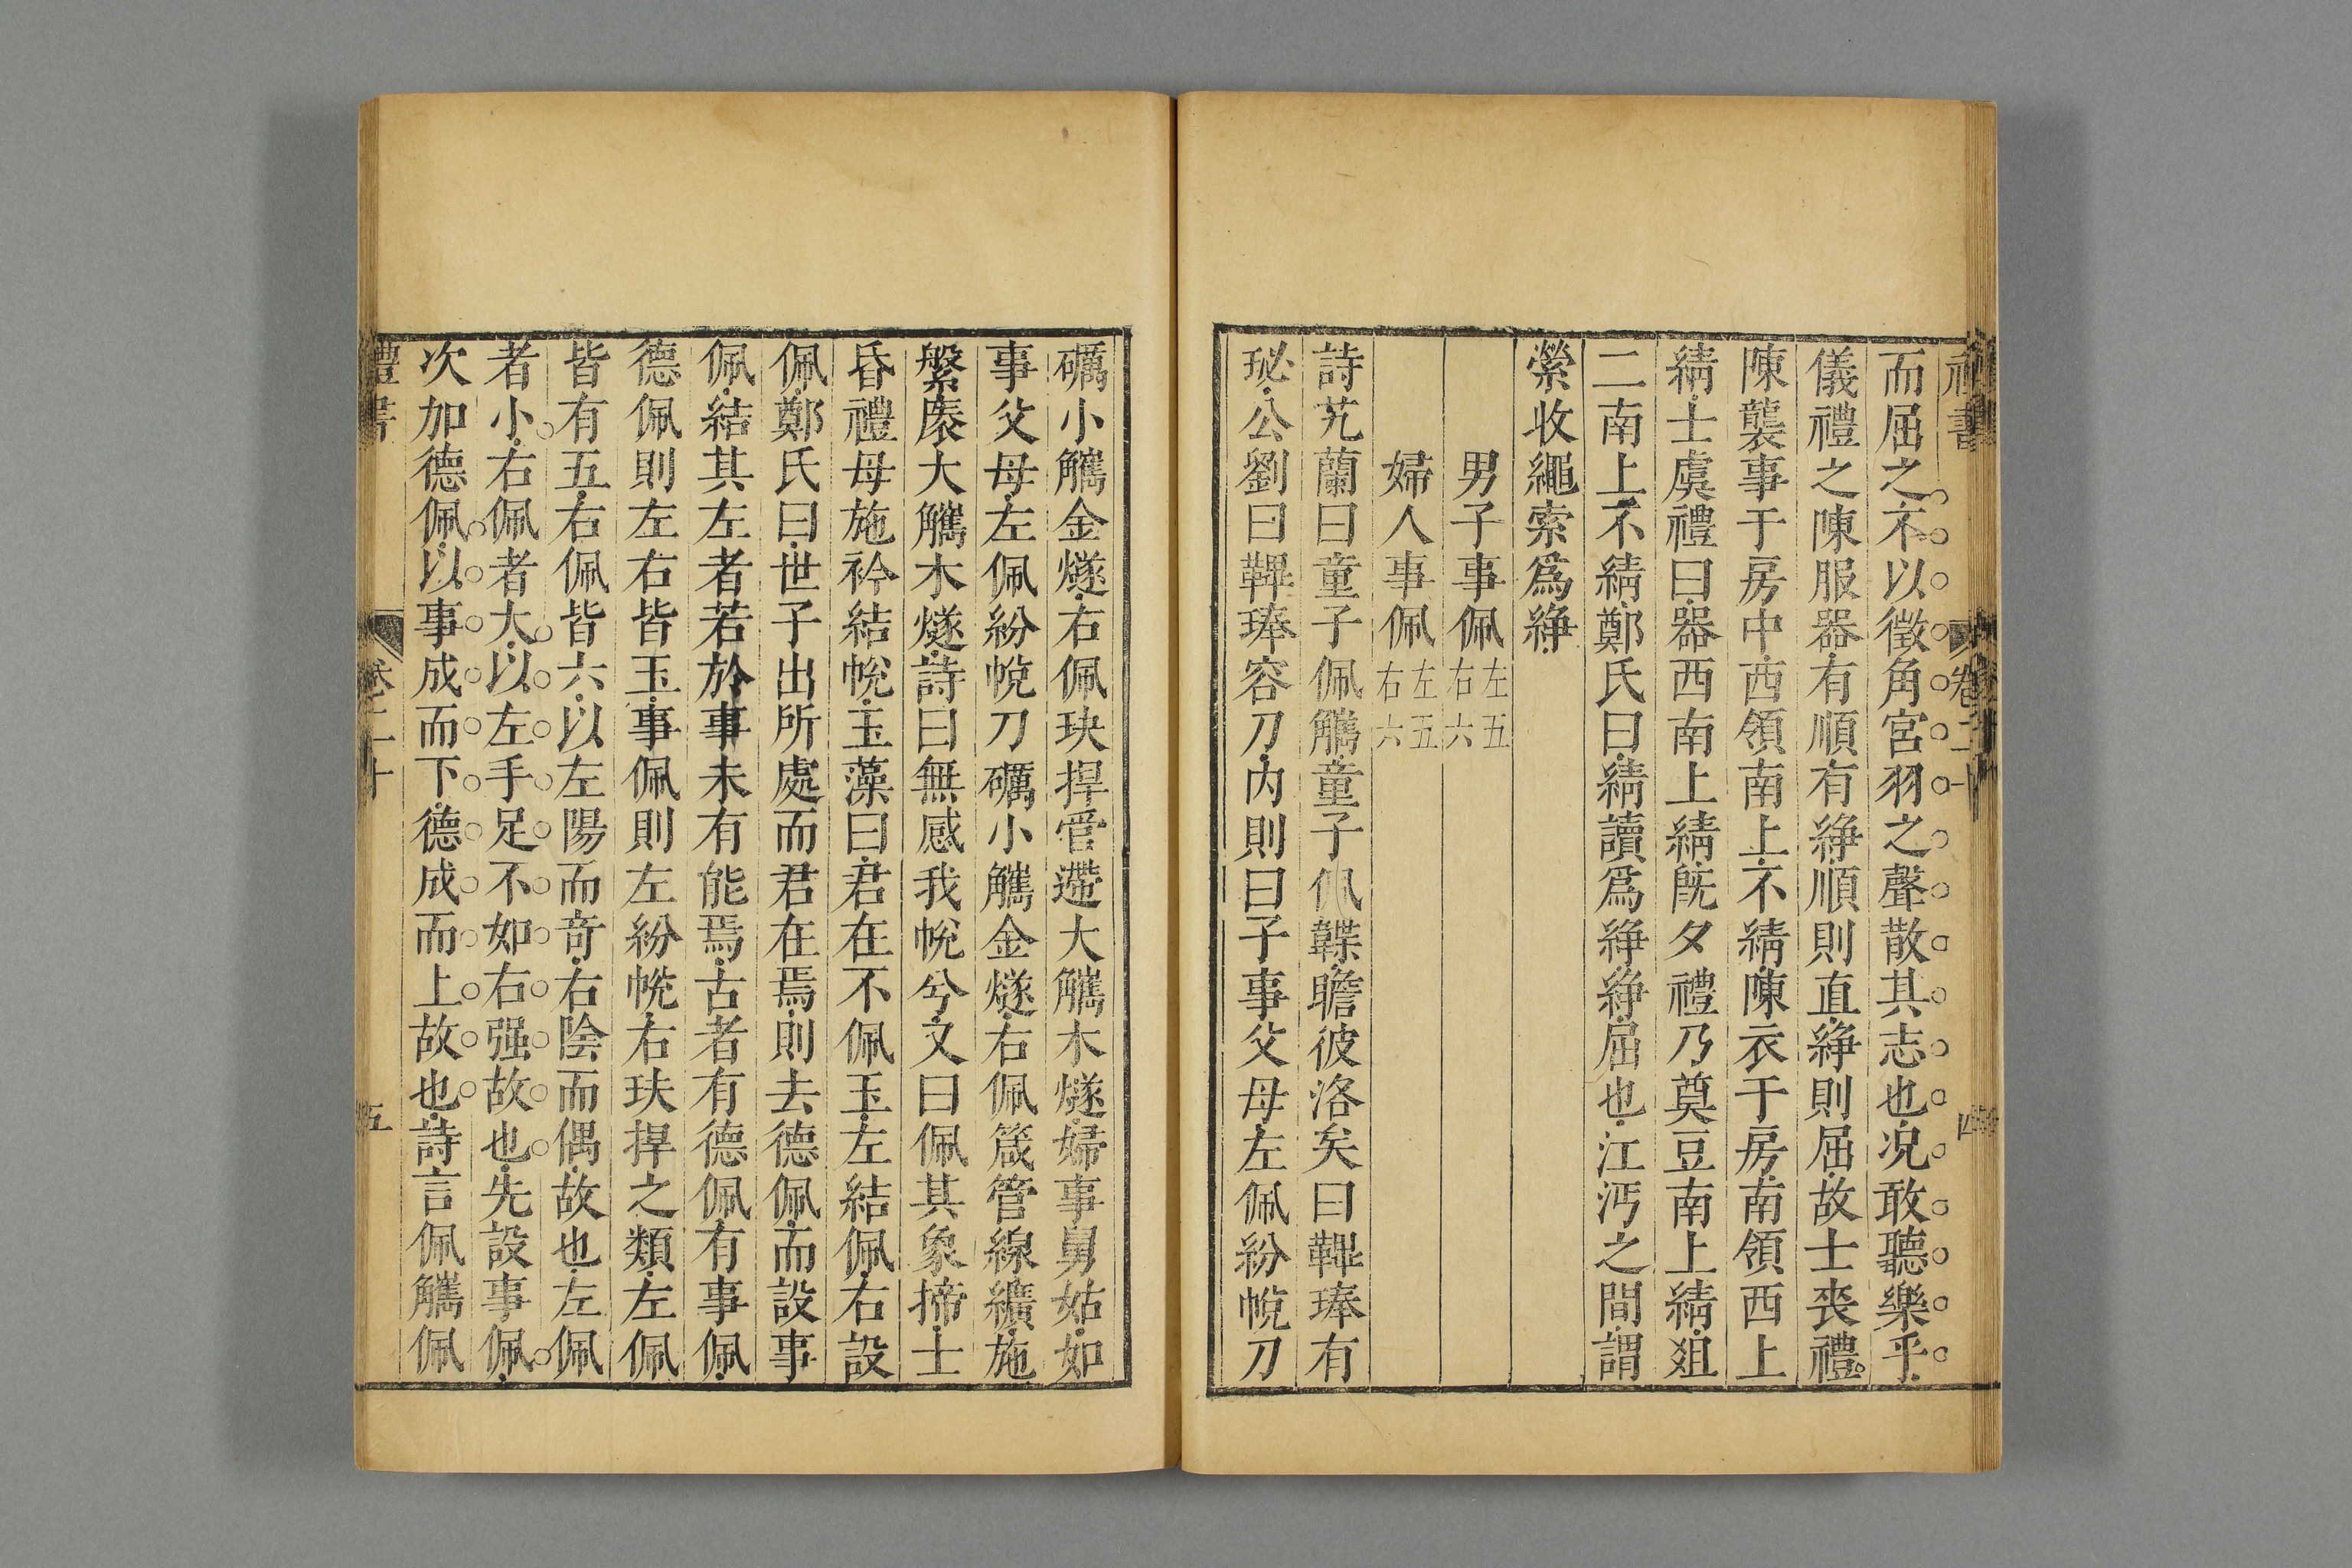 禮書 卷二十 四
而屈之不以徵角宮羽之聲散其志也况敢聽樂乎
儀禮之陳服器有順有綪順則直綪則屈故士喪禮
陳襲事于房中西領南上不綪陳衣于房南領西上
綪士虞禮曰器西南上綪旣夕禮乃奠豆南上綪俎
二南上不綪鄭氏曰綪讀爲絣絣屈也江沔之間謂
縈收繩索爲絣
男子事佩左五右六
婦人事佩左五右六
詩芄蘭曰童子佩觿童子佩韘瞻彼洛矣曰鞞琫有
珌公劉曰鞞琫容刀內則曰子事父母左佩紛帨刀
礪小觿金燧右佩玦捍管遰大觿木燧婦事舅姑如
事父母左佩紛帨刀礪小觿金燧右佩箴管線纊施
縏袠大觿木燧詩曰無感我帨兮又曰佩其象揥士
昏禮母施衿結帨玉藻曰君在不佩玉左結佩右設
佩鄭氏曰世子出所處而君在焉則去德佩而設事
佩結其左者若於事未有能焉古者有德佩有事佩
德佩則左右皆玉事佩則左紛帨右玦捍之類左佩
皆有五右佩皆六以左陽而奇右陰而偶故也左佩
者小右佩者大以左手足不如右强故也先設事佩
次加德佩以事成而下德成而上故也詩言佩觿佩
禮書 卷二十 五